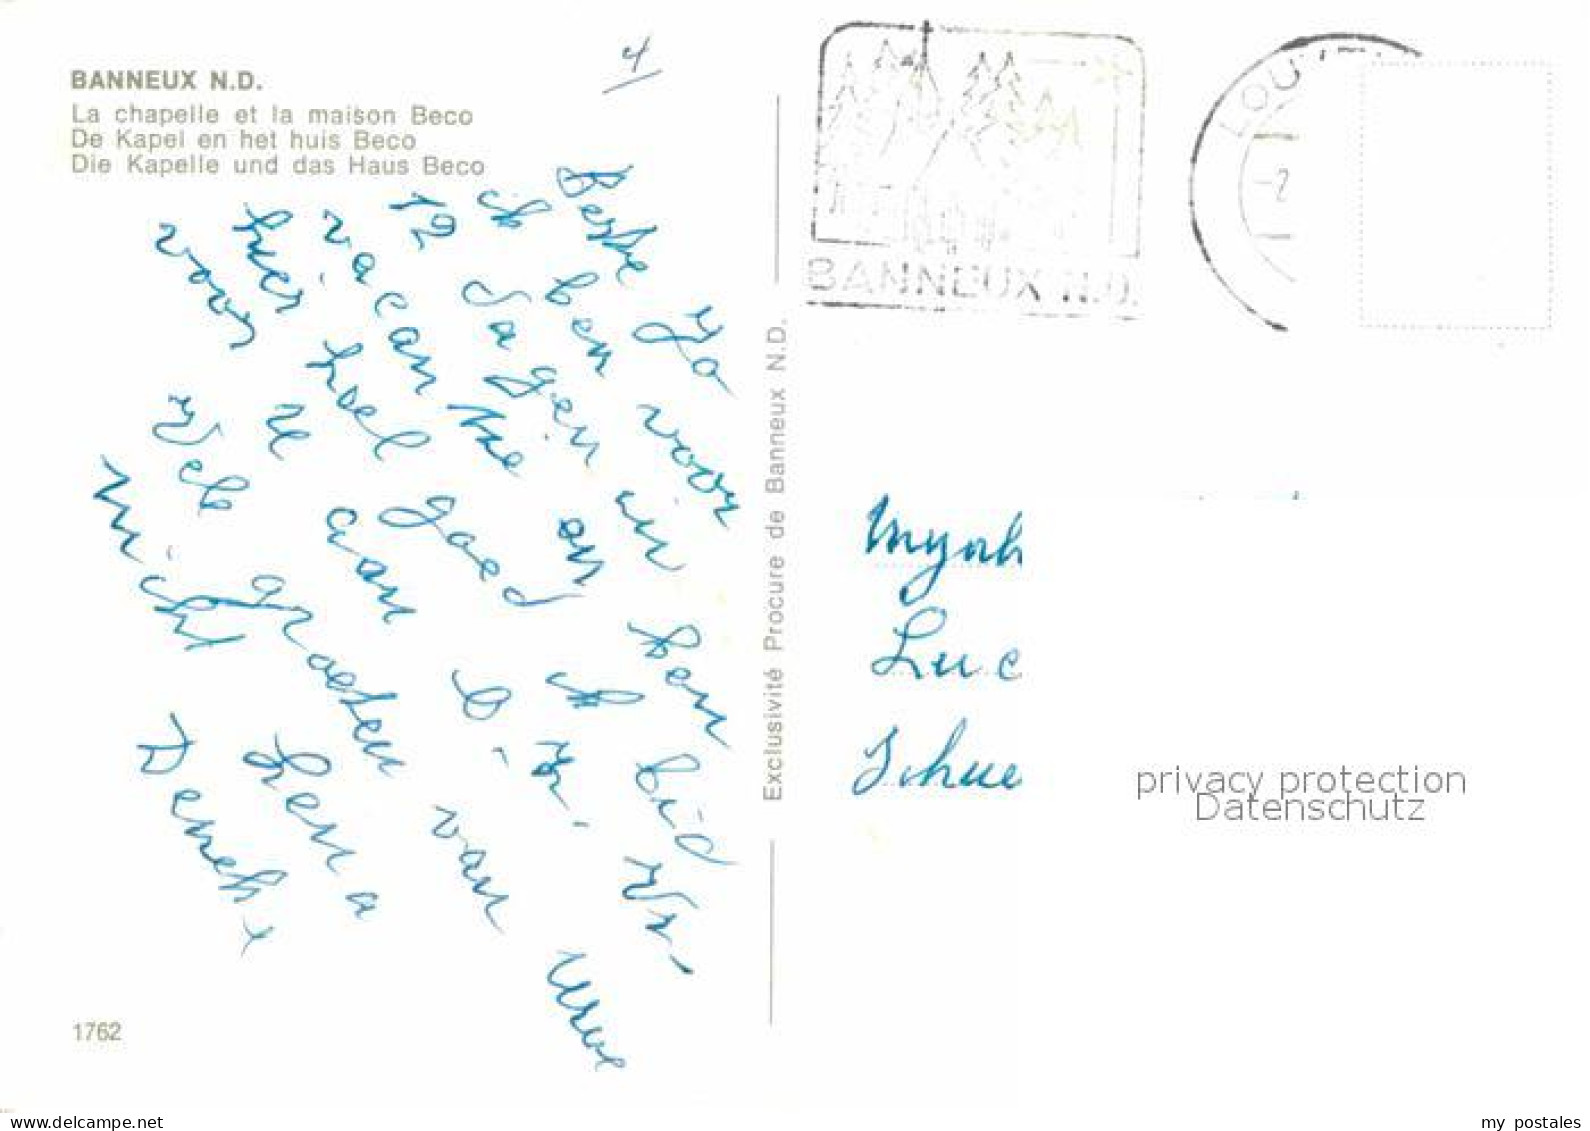 BANNEUX N.D.
La chapelle et la maison Beco
De Kapel en het huis Beco
Die Kapelle und das Haus Beco
4
Beste Jo voor
ik ben in Ben bid
12 dagen on ik Vr.
vacantie
hier hoel goed O.
voor u aan van uwe
Vele groeten
nicht Lena
1762
Exclusivité Procure de Banneux N.D.
BANNEUX N.D.
LOU
-2
Mynh
Luc
Schue
privacy protection
Datenschutz
www.delcampe.net
my_postales